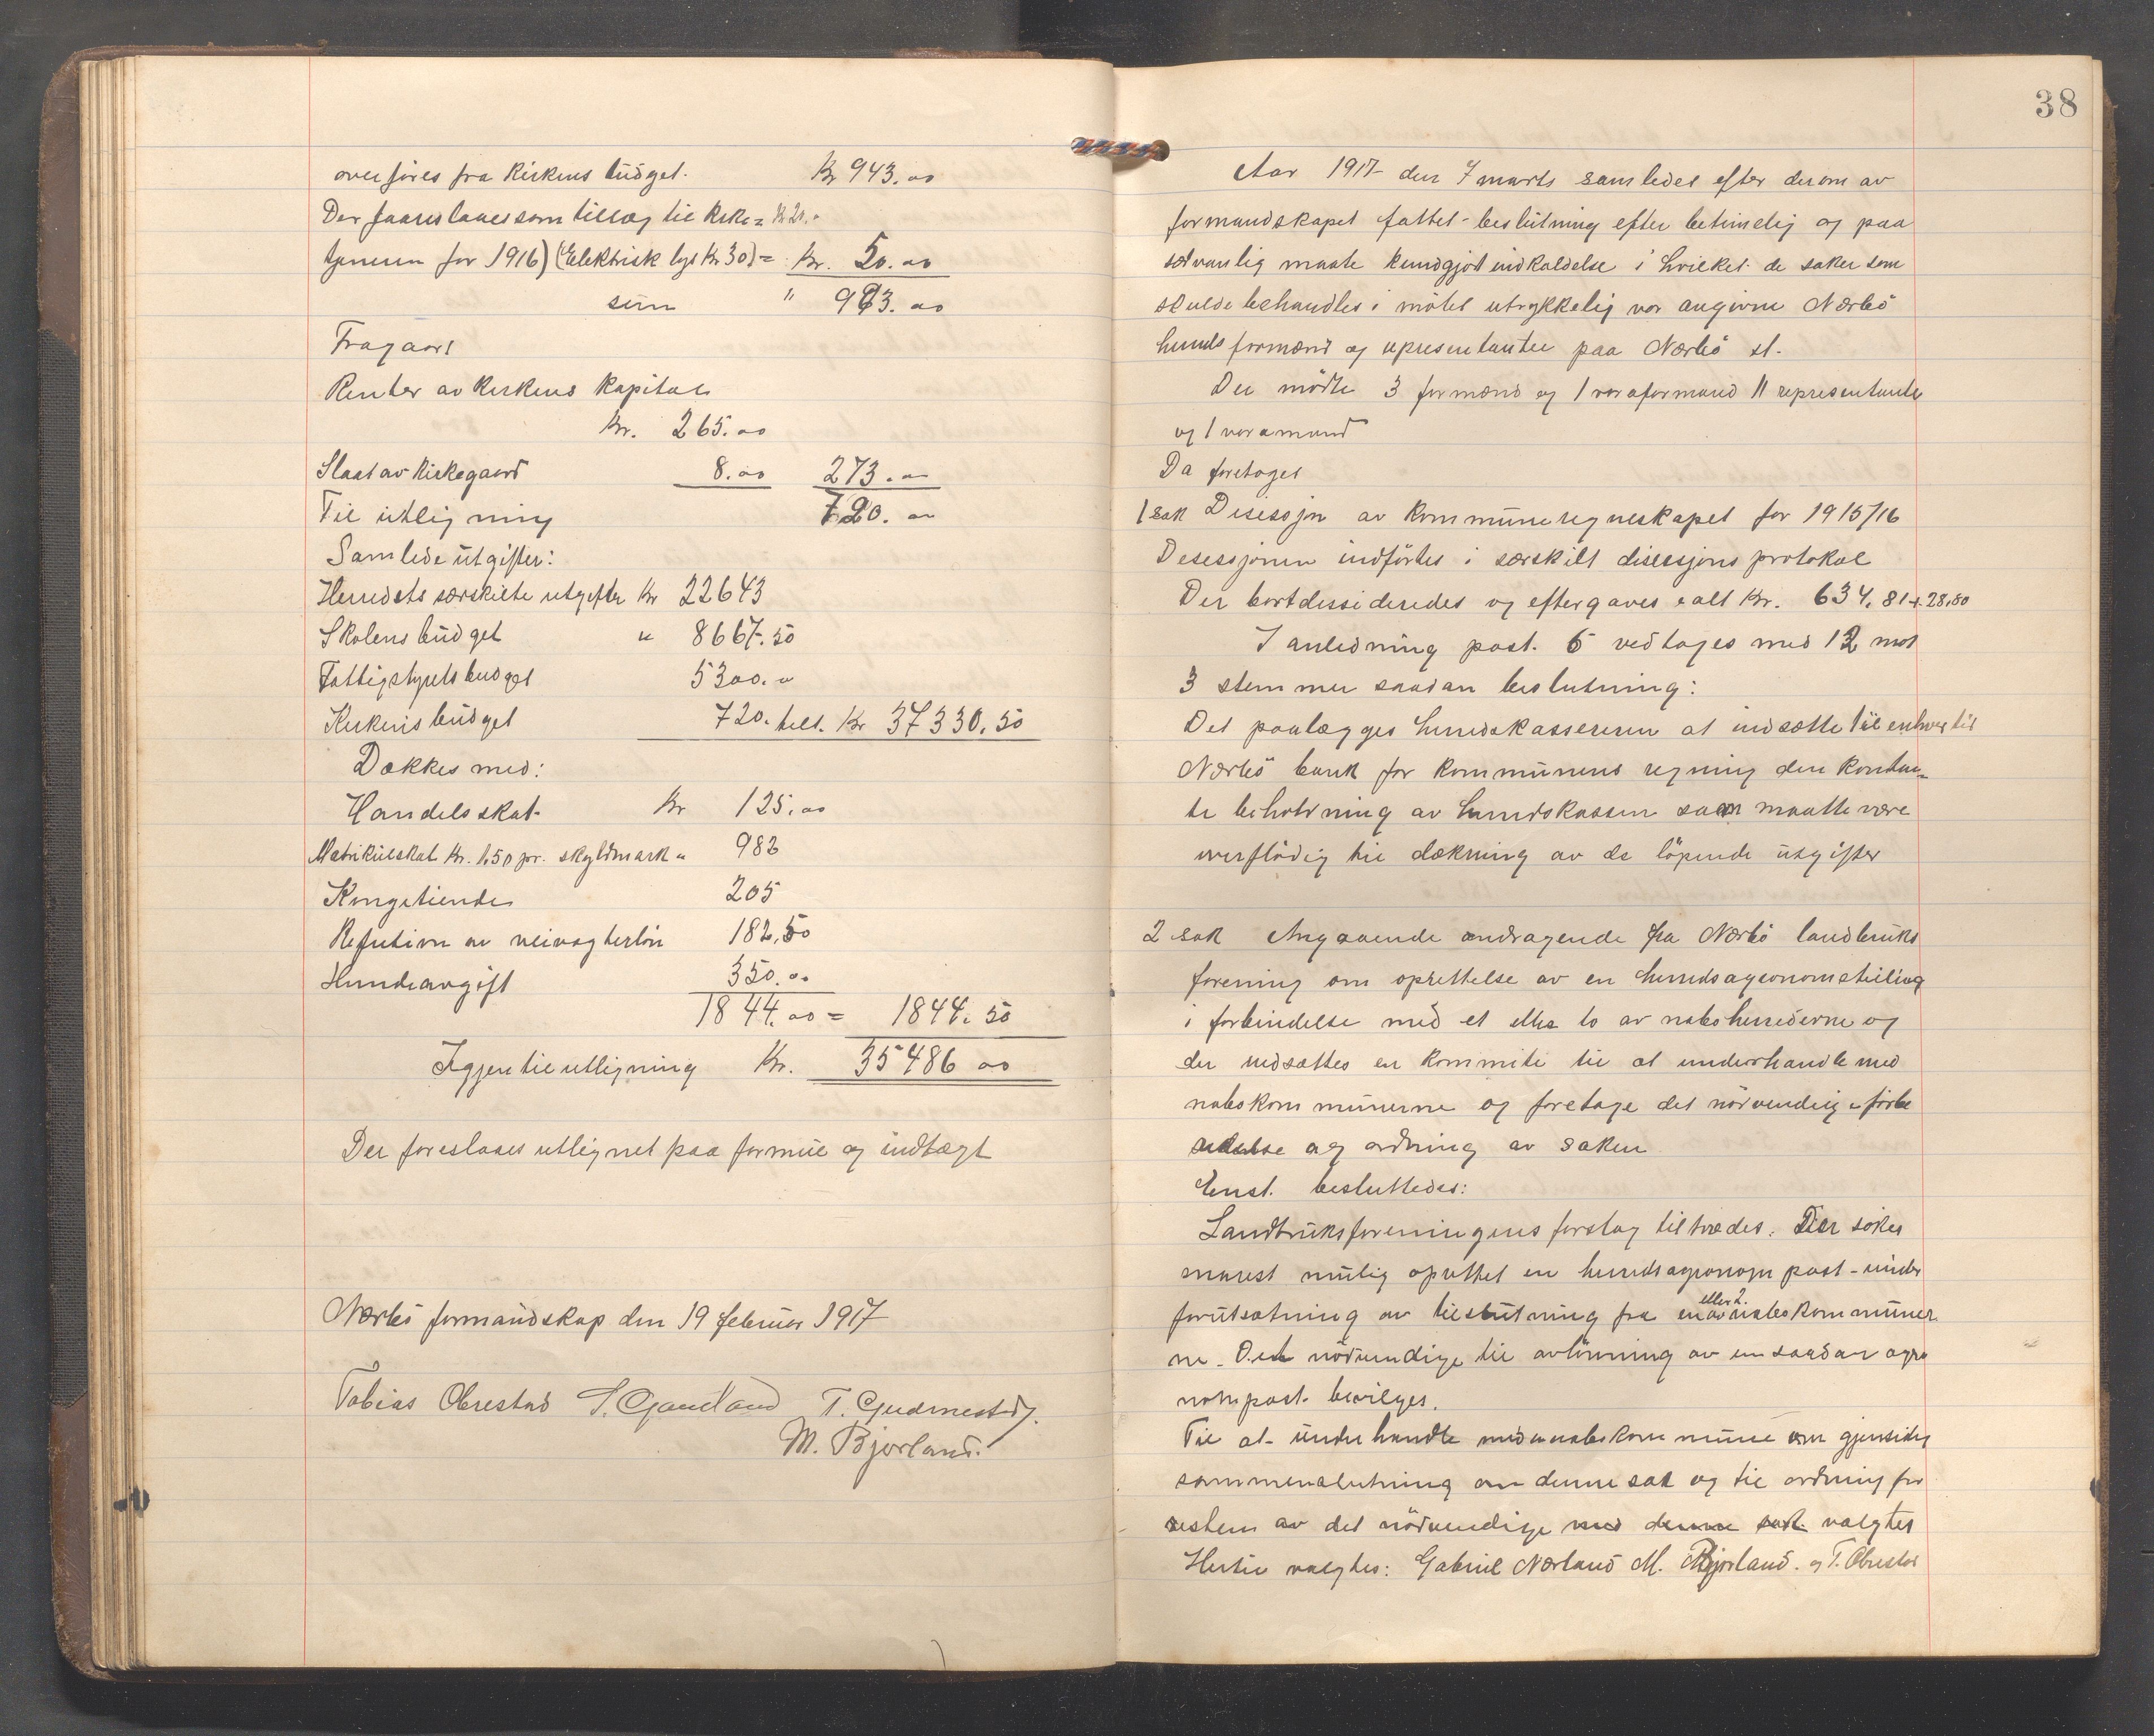 overføres fra Kirkens budget. Kr 943.00
Der foreslaaes som tillæg til Kirke= Kr 20.-
tjeneren for 1916) (Elektrisk lys Kr 30) = Kr. 50.00
sum " 993.00
Fragaar
Renter av Kirkens Kapital
Kr. 265.00
Slaat av Kirkegaard 8.00 273.00
Til utligning 720.00
Samlede utgifter:
Herredets særskilte utgifter Kr 22643
Skolens budget " 8667.50
Fattigstyrets budget 5300.00
Kirkens budget 720. tils. Kr 37330.50
Dækkes med:
Handelsskat Kr 125.00
Matrikulskat Kr. 1.50 pr. skyldmark " 982
Kongetiende 205
Refusion av veivogterløn 182.50
Hundeavgift 350.00
1844.00 = 1844.50
Igjen til utligning Kr. 35486 00
Der foreslaaes utlignet paa formue og indtægt
Nærbø formandskap den 19 februar 1917
Tobias Obrestad S. Gjautland T. Gudmestad.
M. Bjorland.
38
Aar 1917 den 7 marts samledes efter derom av
formandskapet fattet beslutning efter betimelig og paa
sedvanlig maate kundgjort indkaldelse i hvilket de saker som
skulde behandles i møtet utrykkelig var angivne Nærbø
herreds formænd og representanter paa Nærbø st.
Der mødte 3 formænd og 1 varaformand 11 representanter
og 1 varamand
Da foretoges
1 sak Desisjon av Kommuneregneskapet for 1915/16
Desesjonen indførtes i særskilt disessjons protokol
Der bortdessideredes og eftergaves ialt Kr. 634.81 + 28.80
I anledning post. 6 vedtoges med 12 mot
3 stemmer saadan beslutning:
Det paalægges herredskassereren at indsætte til enhver tid
Nærbø bank for kommunens regning den kontan=
te beholdning av herredskassen som maatte være
overflødig til dækning av de løpende utgifter
2 sak Angaaende andragende fra Nærbø landbruks
forening om oprettelse av en herredsagronomstilling
i forbindelse med et eller to av naboherrederne og
der nedsættes en kommite til at underhandle med
nabokommunerne og foretage det nødvendige forbe
redelse og ordning av saken
Enst. besluttedes:
Landbruksforeningens forslag tiltrædes. Der søkes
snarest mulig oprettet en herredsagronom post under
forutsætning av tilslutning fra en eller 2. av nabokommuner
ne. Det nødvendige til avlønning av en saadan agro
nompost bevilges.
Til at underhandle med nabokommune om gjensidig
sammenslutning om denne sak og til ordning for
resten av det nødvendige med denne sak valgtes
Hertil valgtes: Gabriel Nærland M. Bjorland. og T. Obrestad